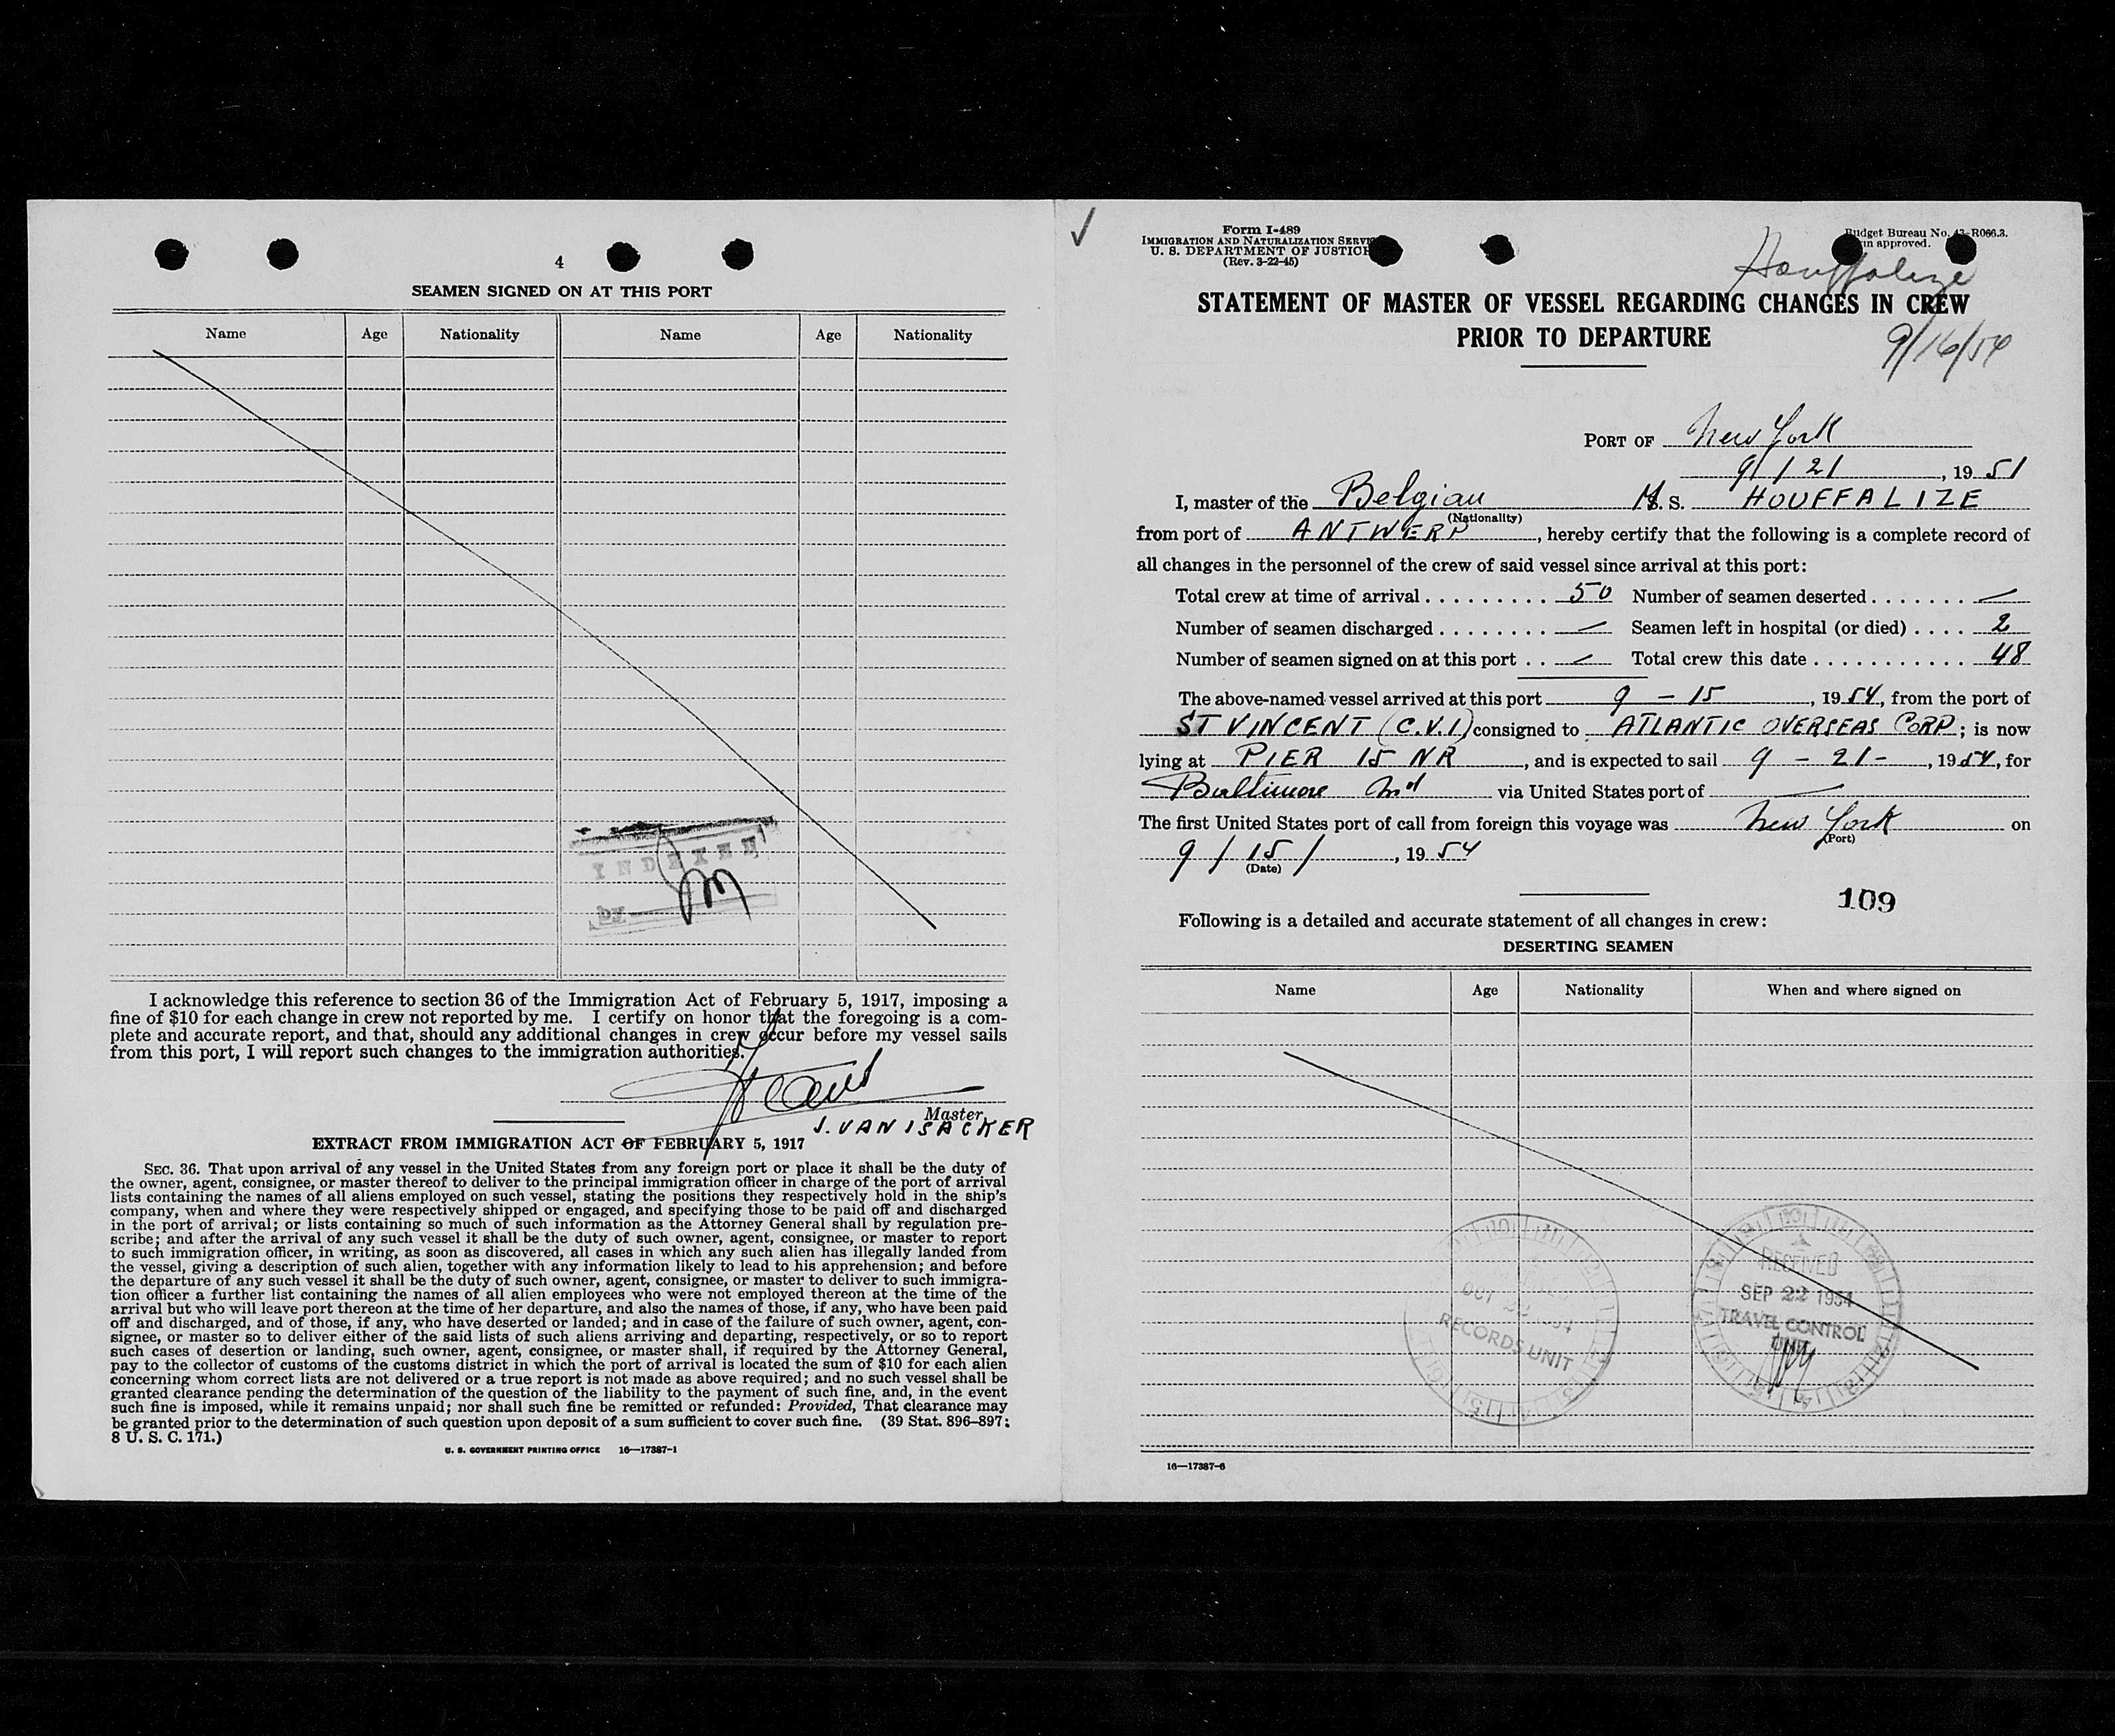 4
SEAMEN SIGNED ON AT THIS PORT
Name Age Nationality Name Age Nationality
INDEXED
by
I acknowledge this reference to section 36 of the Immigration Act of February 5, 1917, imposing a
fine of $10 for each change in crew not reported by me. I certify on honor that the foregoing is a com-
plete and accurate report, and that, should any additional changes in crew occur before my vessel sails
from this port, I will report such changes to the immigration authorities.
Master.
J. VAN ISACKER
EXTRACT FROM IMMIGRATION ACT OF FEBRUARY 5, 1917
SEC. 36. That upon arrival of any vessel in the United States from any foreign port or place it shall be the duty of
the owner, agent, consignee, or master thereof to deliver to the principal immigration officer in charge of the port of arrival
lists containing the names of all aliens employed on such vessel, stating the positions they respectively hold in the ship's
company, when and where they were respectively shipped or engaged, and specifying those to be paid off and discharged
in the port of arrival; or lists containing so much of such information as the Attorney General shall by regulation pre-
scribe; and after the arrival of any such vessel it shall be the duty of such owner, agent, consignee, or master to report
to such immigration officer, in writing, as soon as discovered, all cases in which any such alien has illegally landed from
the vessel, giving a description of such alien, together with any information likely to lead to his apprehension; and before
the departure of any such vessel it shall be the duty of such owner, agent, consignee, or master to deliver to such immigra-
tion officer a further list containing the names of all alien employees who were not employed thereon at the time of the
arrival but who will leave port thereon at the time of her departure, and also the names of those, if any, who have been paid
off and discharged, and of those, if any, who have deserted or landed; and in case of the failure of such owner, agent, con-
signee, or master so to deliver either of the said lists of such aliens arriving and departing, respectively, or so to report
such cases of desertion or landing, such owner, agent, consignee, or master shall, if required by the Attorney General,
pay to the collector of customs of the customs district in which the port of arrival is located the sum of $10 for each alien
concerning whom correct lists are not delivered or a true report is not made as above required; and no such vessel shall be
granted clearance pending the determination of the question of the liability to the payment of such fine, and, in the event
such fine is imposed, while it remains unpaid; nor shall such fine be remitted or refunded: Provided, That clearance may
be granted prior to the determination of such question upon deposit of a sum sufficient to cover such fine. (39 Stat. 896-897;
8 U. S. C. 171.)
U. S. GOVERNMENT PRINTING OFFICE 16—17387-1
Form I-489
IMMIGRATION AND NATURALIZATION SERVI
U. S. DEPARTMENT OF JUSTICE
(Rev. 3-22-45)
Budget Bureau No. 43-R066.3.
approved.
Houffalize
STATEMENT OF MASTER OF VESSEL REGARDING CHANGES IN CREW
PRIOR TO DEPARTURE
9/16/54
PORT OF New York
9/21, 1951
I, master of the Belgian M. S. HOUFFALIZE
(Nationality)
from port of ANTWERP, hereby certify that the following is a complete record of
all changes in the personnel of the crew of said vessel since arrival at this port:
Total crew at time of arrival . . . . . . . . . . 50 Number of seamen deserted . . . . . . . —
Number of seamen discharged . . . . . . . . — Seamen left in hospital (or died) . . . . 2
Number of seamen signed on at this port . . — Total crew this date . . . . . . . . . . . 48
The above-named vessel arrived at this port 9 - 15, 1954, from the port of
ST VINCENT (C.V.I) consigned to ATLANTIC OVERSEAS CORP; is now
lying at PIER 15 NR, and is expected to sail 9 - 21 -, 1954, for
Baltimore Md via United States port of —
The first United States port of call from foreign this voyage was New York on
(Port)
9 / 15 /, 1954
(Date)
109
Following is a detailed and accurate statement of all changes in crew:
DESERTING SEAMEN
Name Age Nationality When and where signed on
OCT 22 1954
RECORDS UNIT
RECEIVED
SEP 22 1954
TRAVEL CONTROL
UNIT
16—17387-6